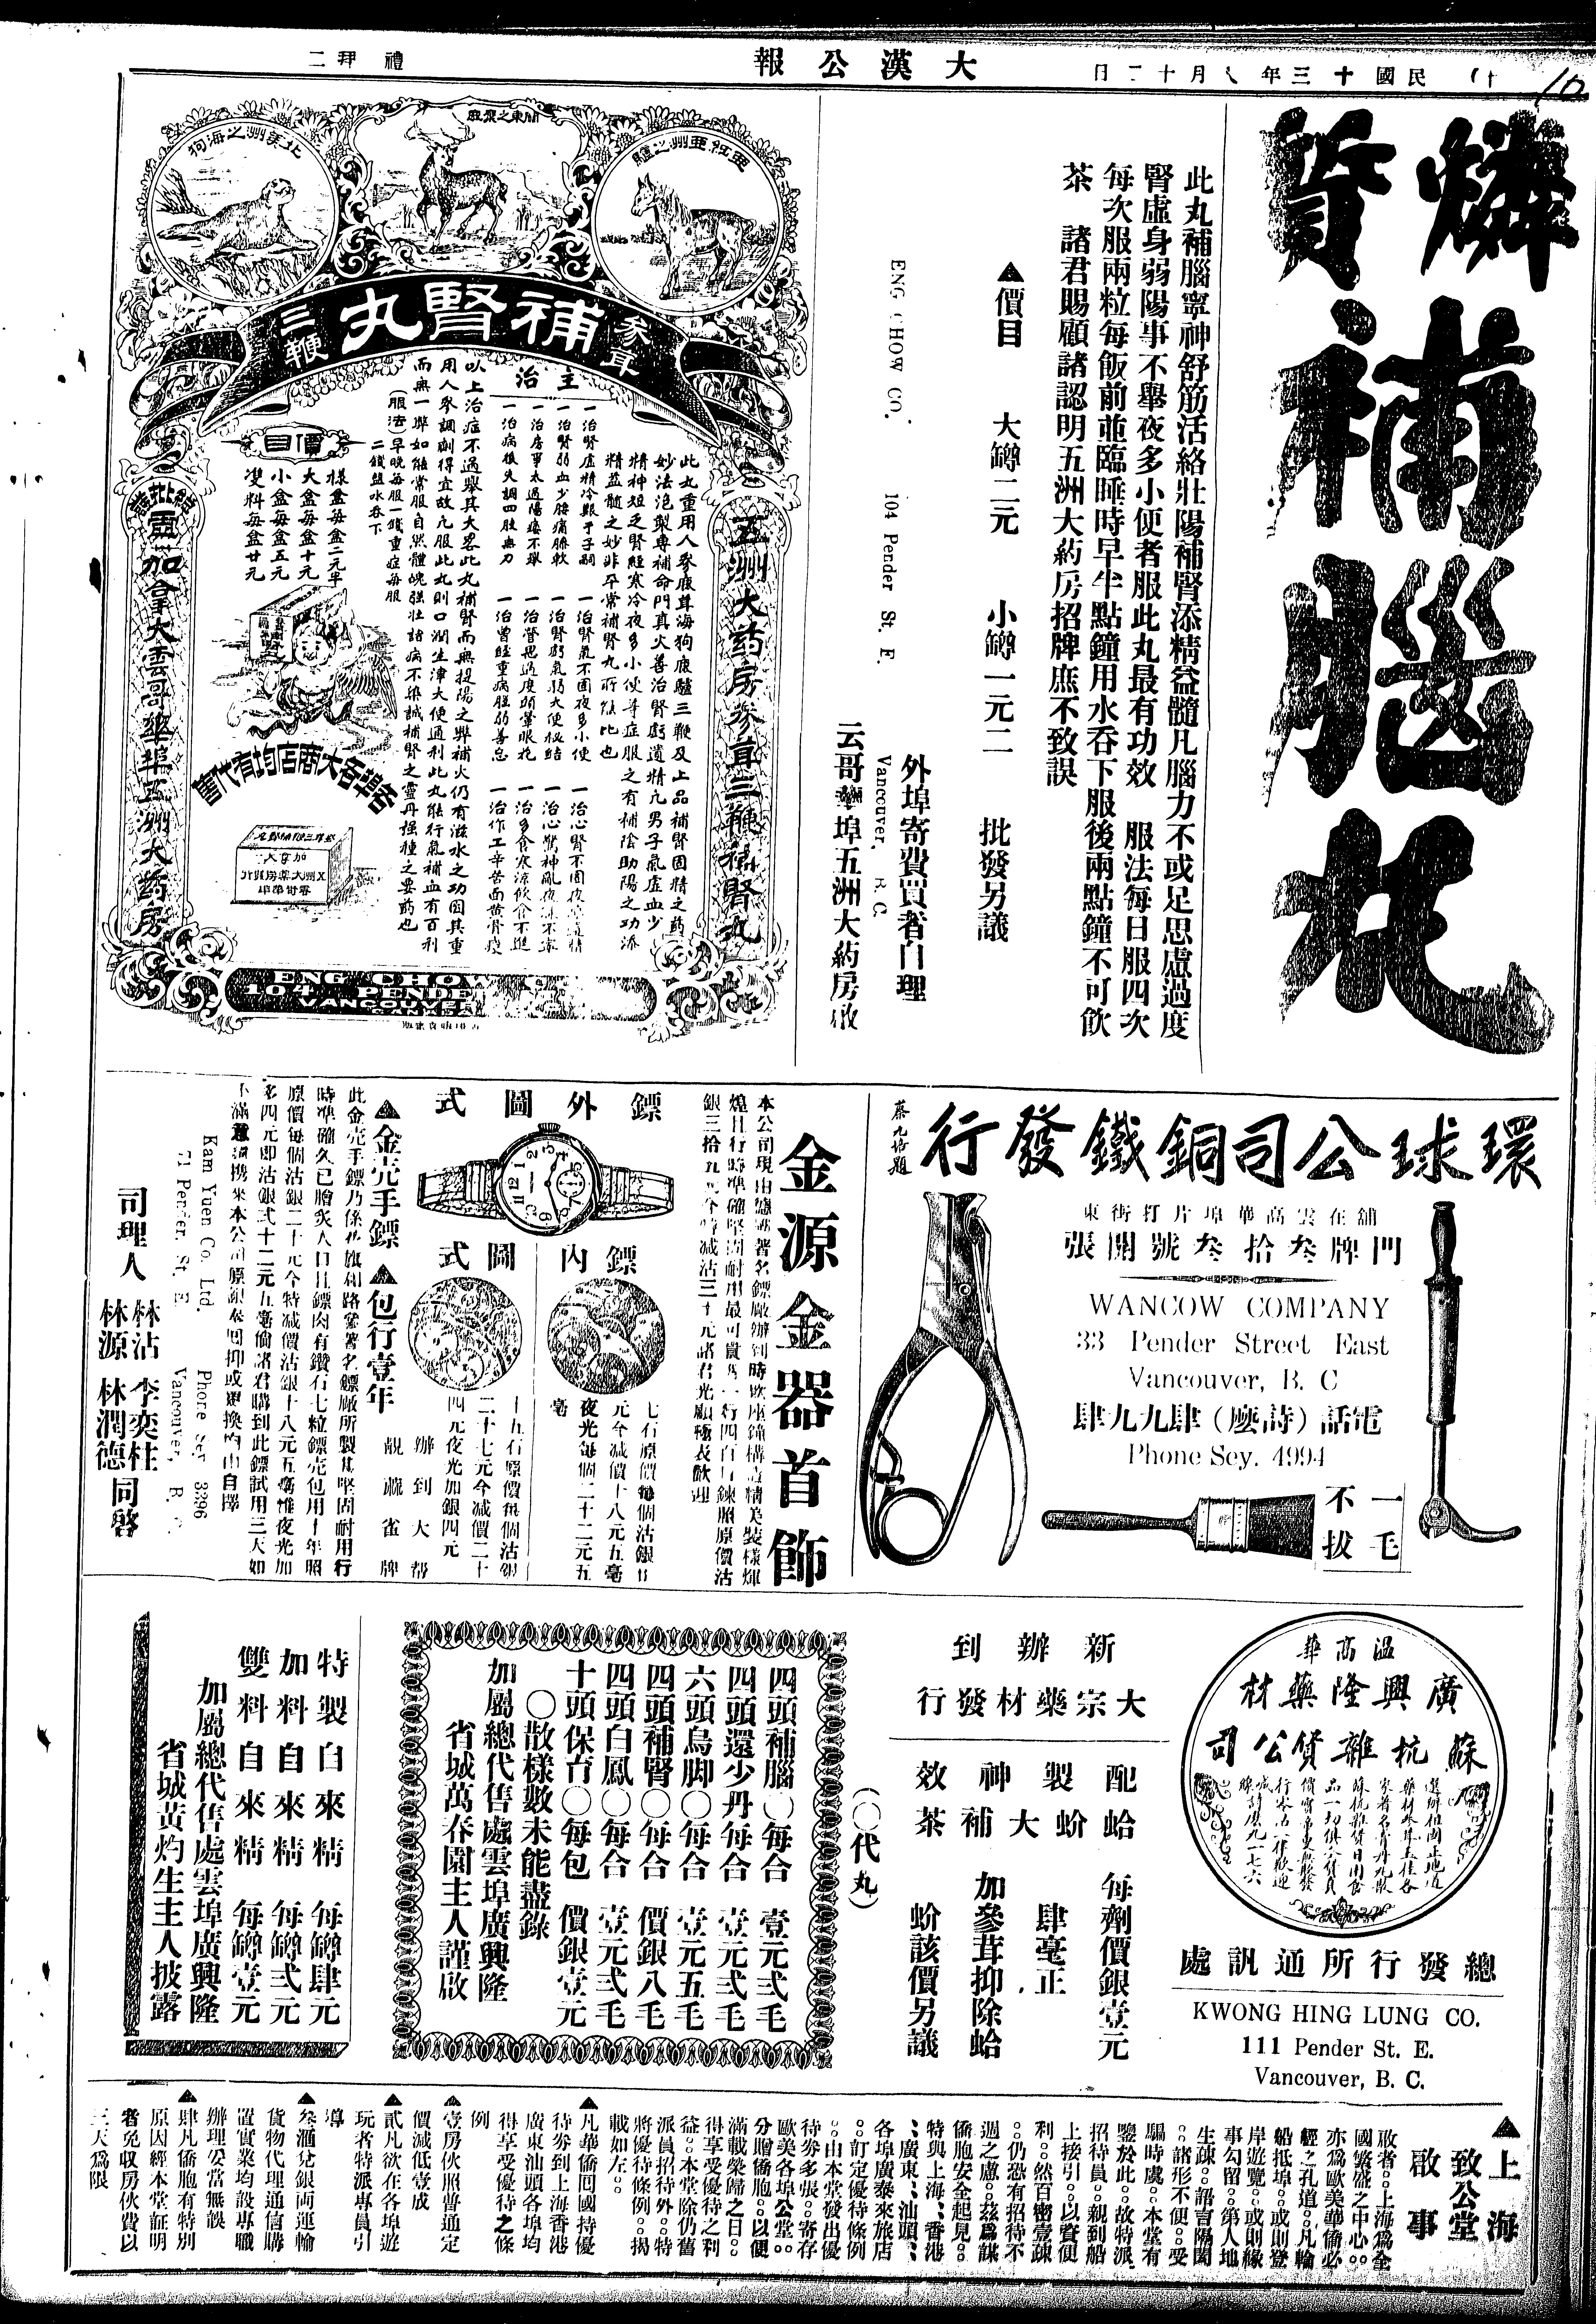 大漢公報
民國十三年八月十二日
禮拜二
燐質補腦丸
此丸補腦寧神舒筋活絡壯陽補腎添精益髓凡腦力不或足思慮過度
腎虛身弱陽事不舉夜多小便者服此丸最有功效 服法每日服四次
每次服兩粒每飯前並臨睡時早半點鐘用水吞下服後兩點鐘不可飲
茶 諸君賜顧諸認明五洲大葯房招牌庶不致誤
▲價目 大罇二元 小罇一元二 批發另議
外埠寄費買者自理
ENG CHOW CO. 104 Pender St. E. Vancouver, B.C.
云哥華埠五洲大葯房啟
北美洲之海狗
關東之梅鹿
亞拉亞洲之驢
參茸
補腎丸
三鞭
五洲大葯房參茸三鞭補腎丸
主治
此丸重用人參鹿茸海狗鹿驢三鞭及上品補腎固精之葯
妙法泡製專補命門真火善治腎虧遺精凡男子氣虛血少
精神短乏腎經寒冷夜多小便等症服之有補陰助陽之功添
精益髓之妙非平常補腎丸所能比也
一治腎虛精冷艱于子嗣
一治腎氣不固夜多小便
一治腎弱血少腰痛脚軟
一治腎虧氣弱大便秘結
一治心驚神亂夜寐不寧
一治房事太過陽痿不舉
一治營思過度頭暈眼花
一治多食寒涼飲食不進
一治病後失調四肢無力
一治曾經重病體弱善忘
一治作工辛苦面黃骨痠
以上治症不過舉其大畧此丸補腎而無提陽之弊補火仍有滋水之功因其重
用人參調劑得宜故凡服此丸則口潤生津大便通利此丸能行氣補血有百利
而無一弊如能常服自然體魄強壯諸病不染誠補腎之靈丹種種之要葯也
(服法)早晚每服一錢重症每服
二錢盬水吞下
價目
樣盒每盒二元半
大盒每盒十元
小盒每盒五元
雙料每盒廿元
各埠各大商店均有代售
總批發
加拿大雲哥華埠五洲大葯房
ENG CHOW
104 PENDE
VANCOUVER
環球公司銅鐵發行
舖在雲高華埠片打街東
門牌叁拾叁號開張
WANCOW COMPANY
33 Pender Street East
Vancouver, B. C
電話(詩麼)肆九九肆
Phone Sey. 4994
一毛不拔
金源金器首飾
鏢外圖式
鏢內圖式
七石原價每個沽銀廿
元今減價十八元五毫
夜光每個二十二元五
毫
十五石原價每個沽銀
二十七元今減價二十
四元夜光加銀四元
辦到大帮
靚蔴雀牌
▲金壳手鏢 ▲包行壹年
Kam Yuen Co. Ltd. Phone Sey. 3296
71 Pender. St. E. Vancouver, B. C.
司理人 林沾 李奕柱 林源 林潤德 同啓
溫高華
廣興隆藥材
蘇杭雜貨公司
總發行所通訊處
KWONG HING LUNG CO.
111 Pender St. E.
Vancouver, B. C.
新辦到
大宗藥材發行
配製神效
蛤蚧大補茶
每劑價銀壹元
肆毫正
加參茸抑除蛤
蚧該價另議
(〇代丸)
四頭補腦〇每合 壹元弍毛
四頭還少丹每合 壹元弍毛
六頭烏脚〇每合 壹元五毛
四頭補腎〇每合 價銀八毛
四頭白鳳〇每合 壹元弍毛
十頭保育〇每包 價銀壹元
〇散樣數未能盡錄
加屬總代售處雲埠廣興隆
省城萬春園主人謹啟
特製白來精 每罇肆元
加料自來精 每罇弍元
雙料自來精 每罇壹元
加屬總代售處雲埠廣興隆
省城黃灼生主人披露
▲上海致公堂啟事
敬者。。上海為全
國繁盛之中心。。
亦為歐美華僑必
經之孔道。。凡輪
船抵埠。。或則登
岸遊覽。。或則緣
事勾留。。第人地
生疎。。語言隔閡
。。諸形不便。。受
騙時虞。。本堂有
鑒於此。。故特派
招待員。。親到船
上接引。。以資便
利。。然百密壹疎
。。仍恐有招待不
週之慮。。茲為謀
僑胞安全起見。。
特與上海、香港
、廣東、汕頭、
各埠廣泰來旅店
。。訂定優待條例
。。由本堂發出優
待劵多張。。寄存
歐美各埠公堂。。
分贈僑胞。。以便
滿載榮歸之日。。
得享受優待之利
益。。本堂除仍舊
派員招待外。。特
將優待條例。。揭
載如左。。
▲凡華僑囘國持優
待劵到上海香港
廣東汕頭各埠均
得享受優待之條
例
▲壹房伙照普通定
價減低壹成
▲貳凡欲在各埠遊
玩者特派專員引
導
▲叁滙兌銀両運輸
貨物代理通信購
置實業均設專職
辦理妥當無誤
▲肆凡僑胞有特別
原因經本堂証明
者免收房伙費以
三天為限